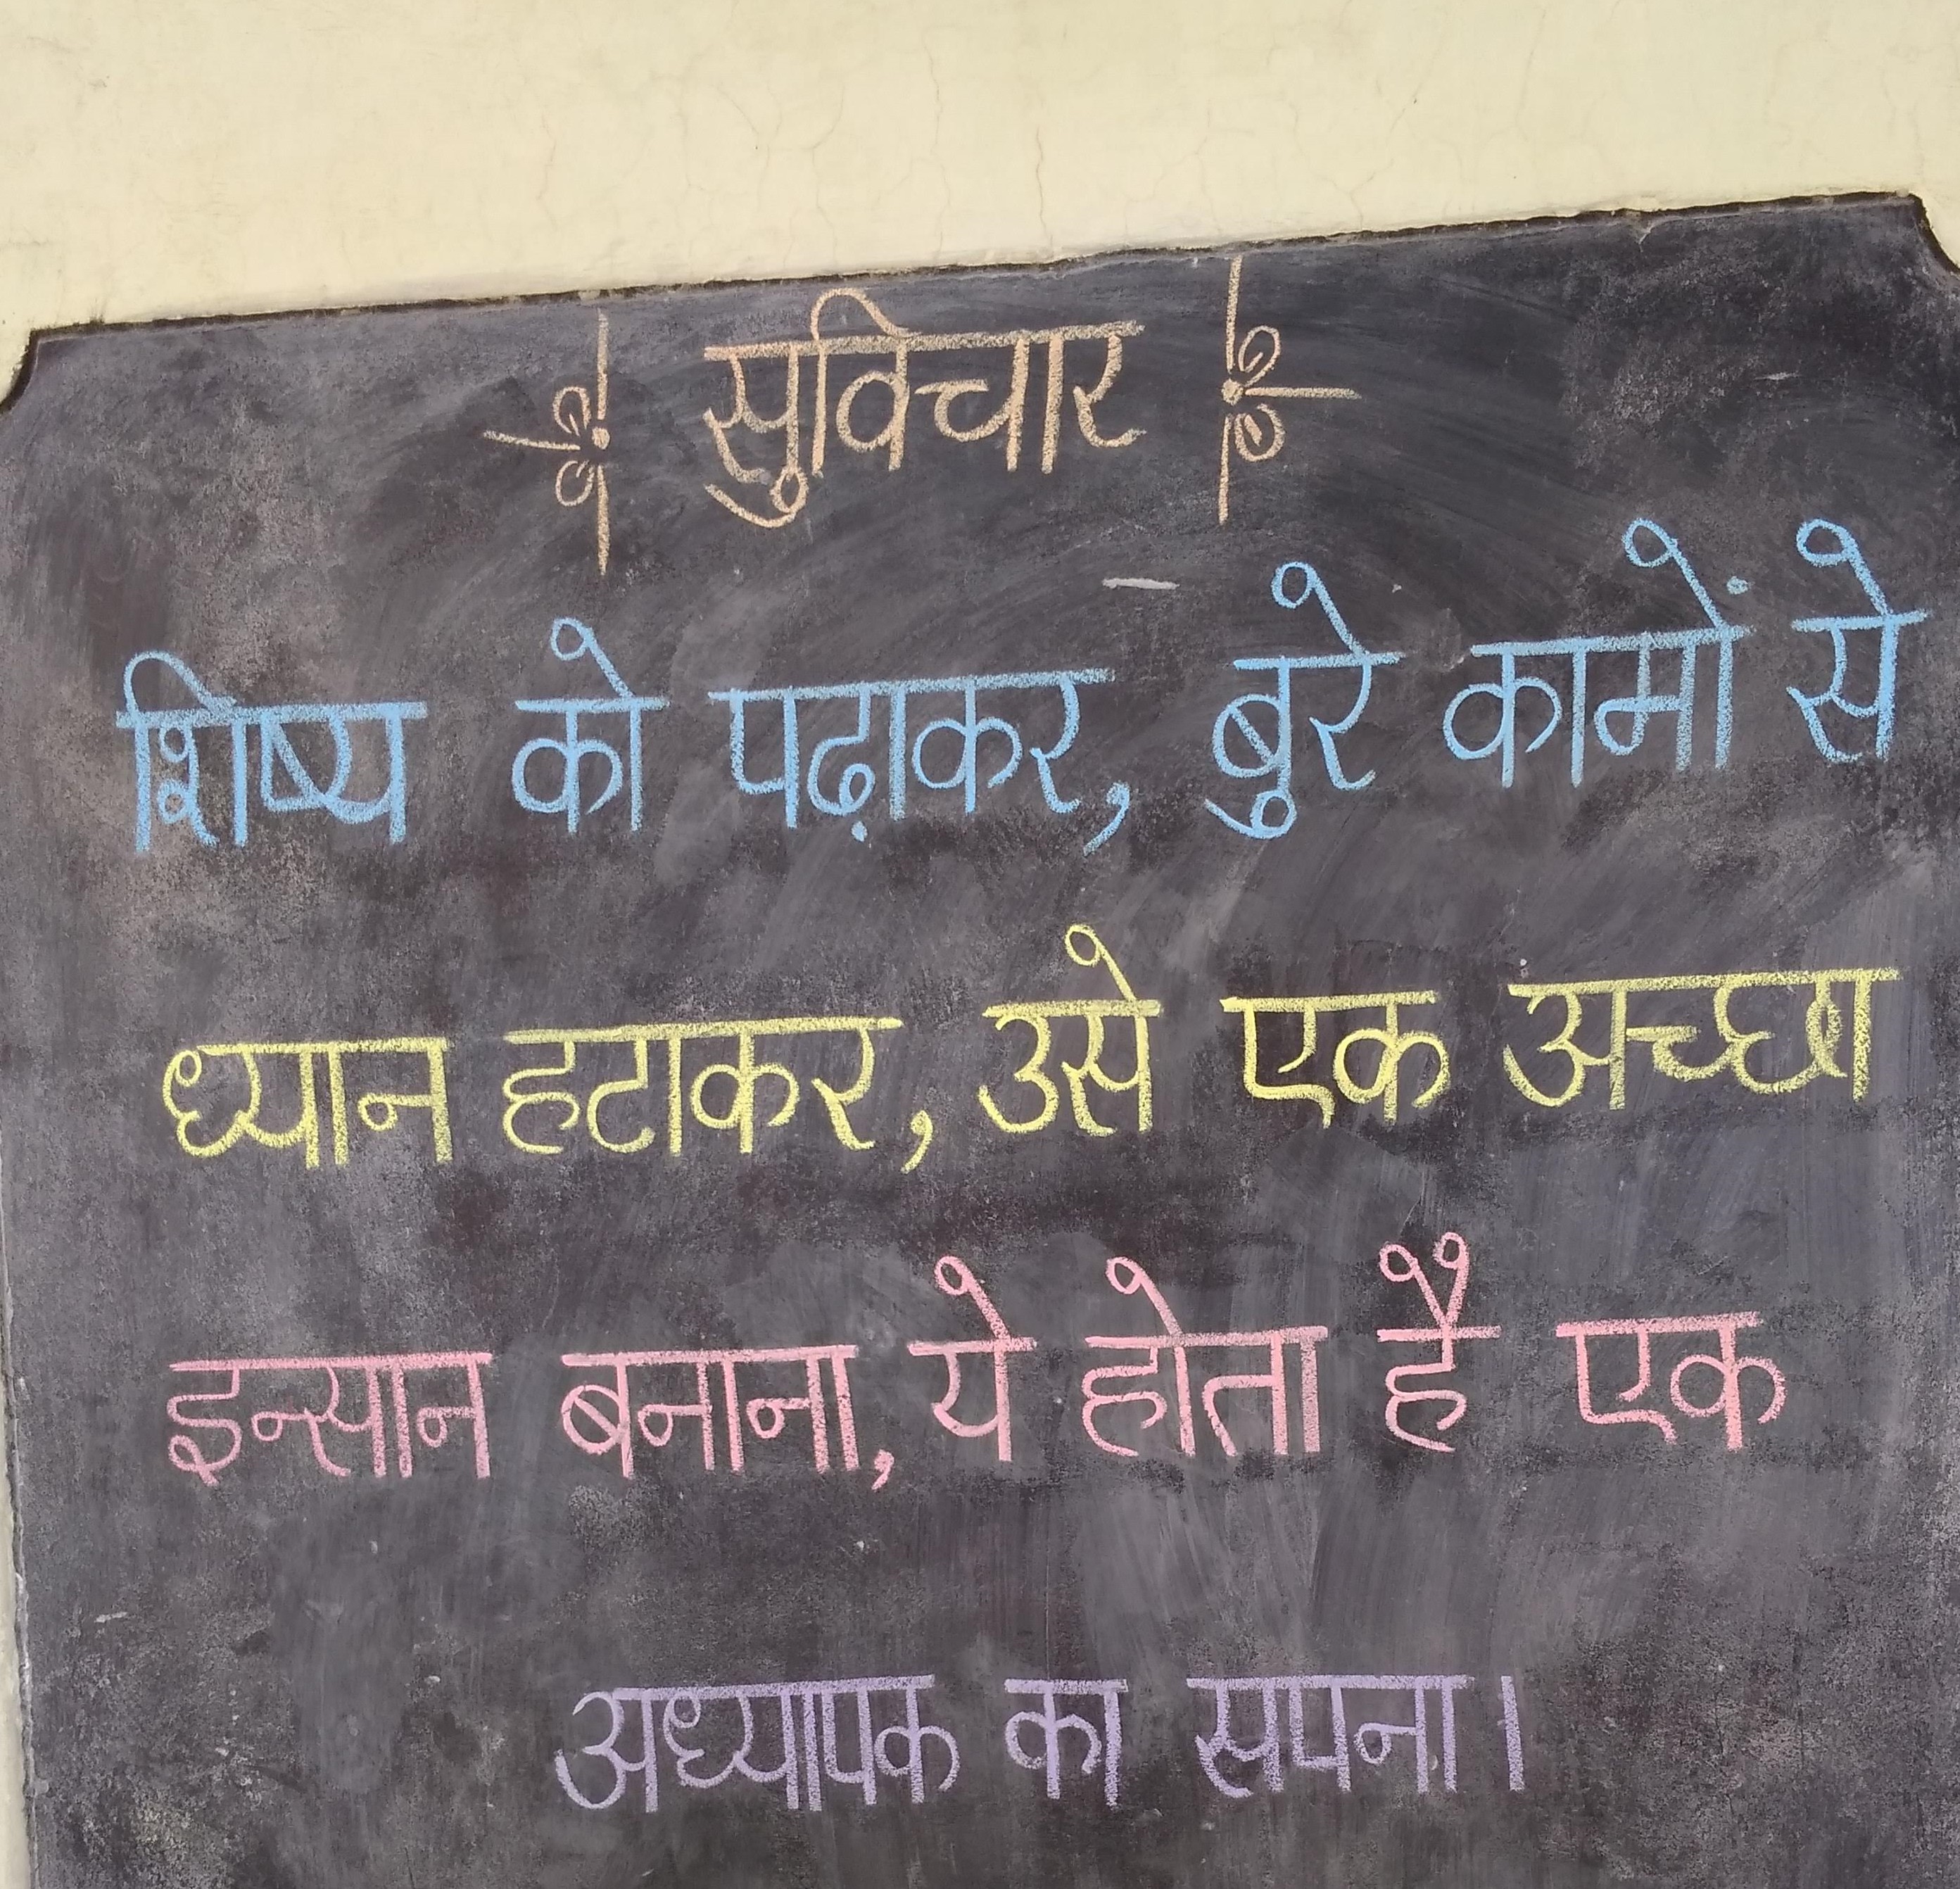 सुविचार
शिष्य को पढ़ाकर, बुरे कामों से
ध्यान हटाकर, उसे एक अच्छा
इन्सान बनाना, ये होता है एक
अध्यापक का सपना।